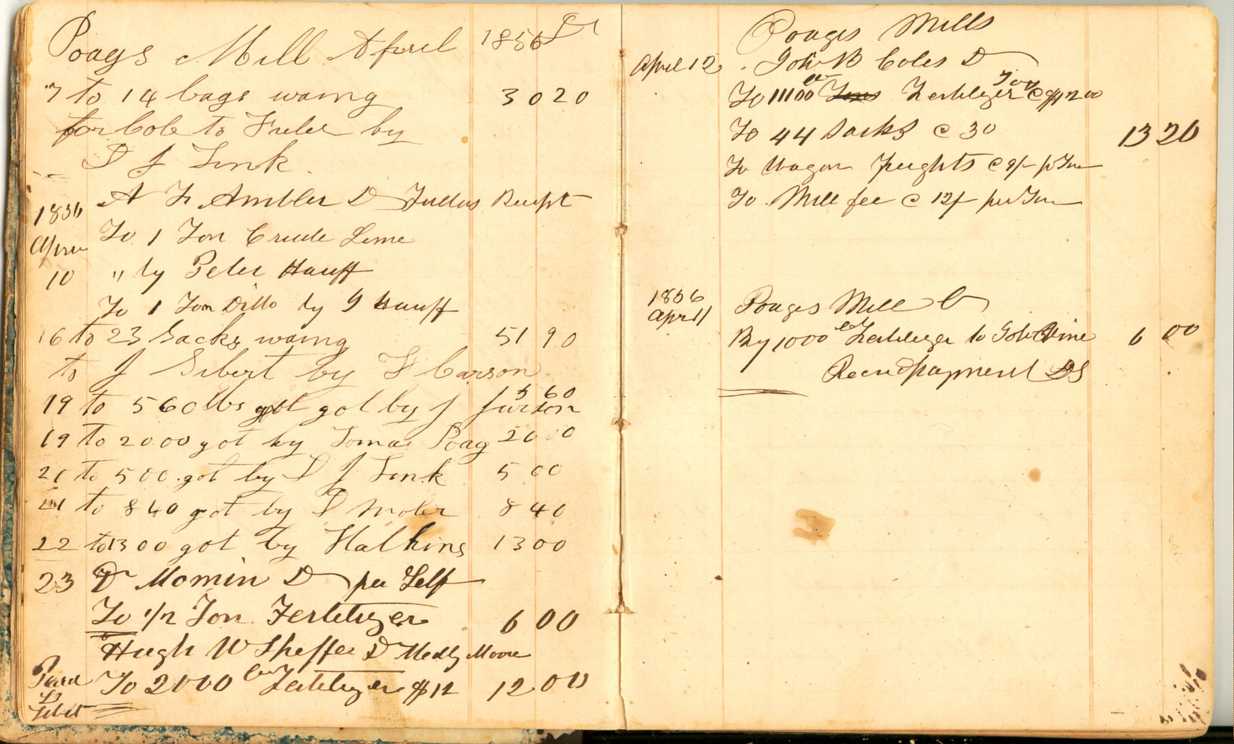 Poags Mill April 1856 Dr
7 to 14 bags waing 3020
for Cole to Fulee by
D J Link
1856 A F Ambler D Fullus Receipt
April To 1 Ton Crude Lime
10 " by Peter Hauff
To 1 Ton Ditto by G Hauff
16 to 23 Sacks waing 5190
to J Sibert by W Carson
19 to 560 lbs got got by J Furson 560
19 to 2000 got by Tomas Poag 2000
21 to 500 got by D J Link 500
21 to 840 got by D Moler 840
22 to 1300 got by Halkins 1300
23 D Momin D per Self
To 1/2 Ton Fertilizer 6 00
Hugh W Sheffee D Medly Moore
Paid To 2000 lbs Fertilizer $12 12 00
Poages Mills
April 12 John B Coles D
To 11100 lbs Tons Fertilizer @ $12 00
To 44 Sacks @ 30 13 20
To Wagon freights @ 9/- pr Ton
To Mill fee @ 12/ per Ton
1856 Poages Mill Cr
April 11 By 1000 lbs Fertilizer to Gob Hine 6 00
Recd payment DS